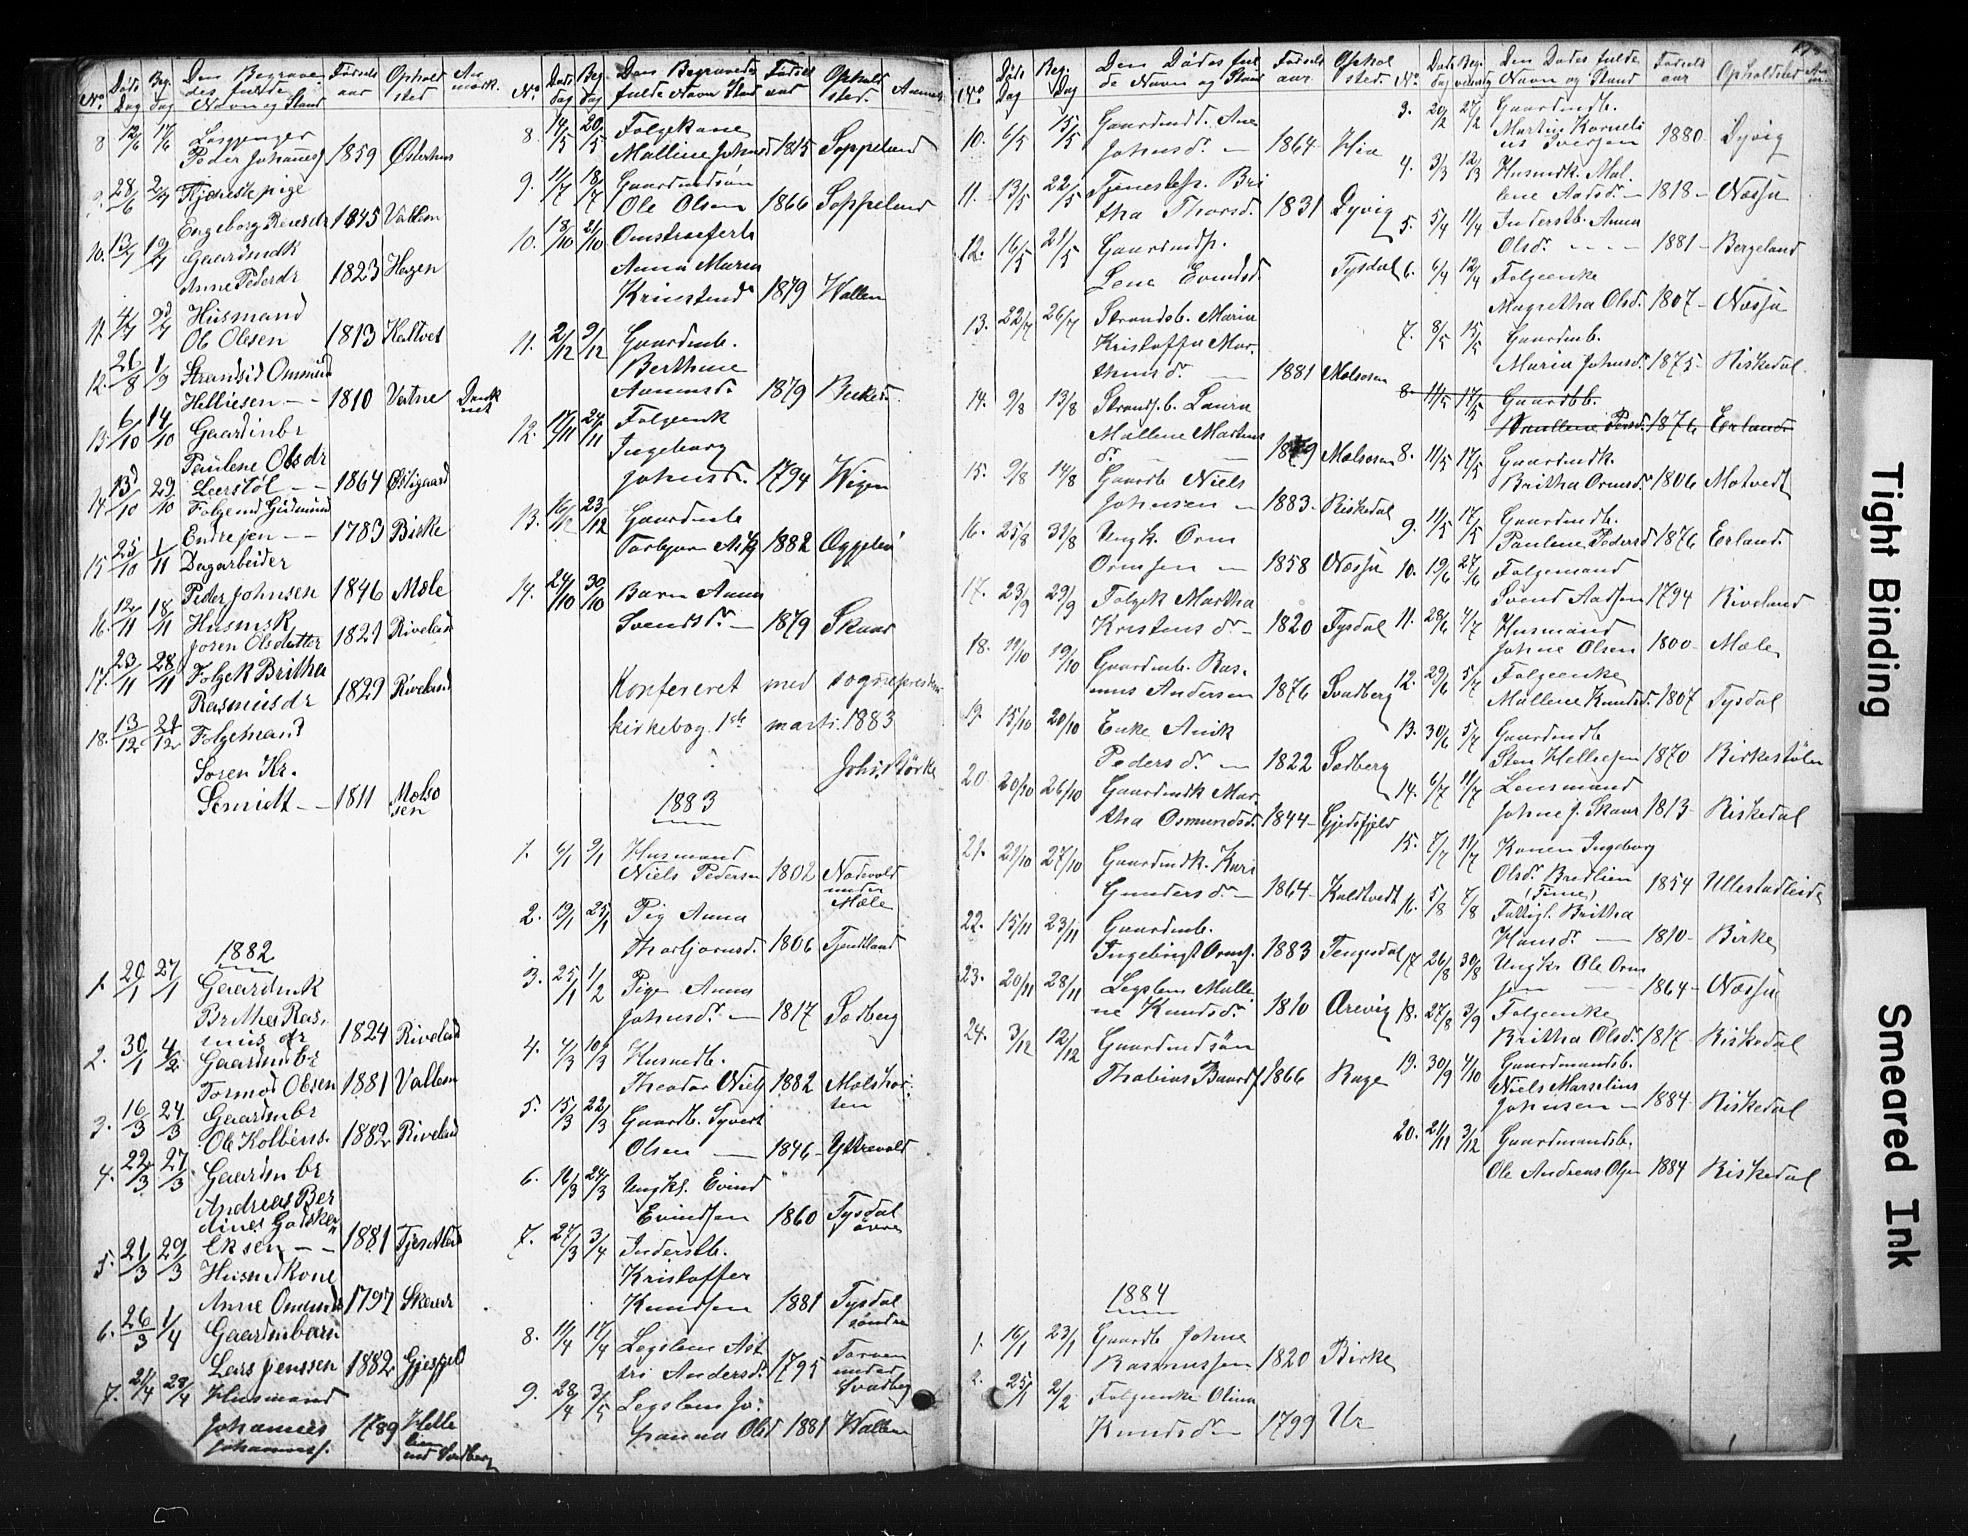 No. Døds Dag Beg. dag Den Begravedes fulde Navn og Stand Fødsels aar Ophold sted An mærk.
8 12/6 17/6
Peder Johanes 1859 Østerhus
9. 28/6 2/7 Tjenestepige
Engeborg Reiersdr 1845 Vallem
10. 13/7 19/7 Gaardmdk
Anne Pedersdr 1823 Hagen
11. 4/7 Husmand
Ole Olesen 1813 Kaltvet
12. 26/8 1/9 Strandsid Ommund
Helliesen - - 1810 Vatne
13. 6/10 14/10 Gaardmbr
Paulene Olsdr
Leerstøl - - 1864 Østigaard
14. 13/10 29/10 Folgemd Gudmund
Endresen - - 1783 Birke
15 25/10 1/11 Dagarbeider
Peder Johnsen 1846 Mæle
16. 12/11 18/11 Husmsk
Joren Olsdatter 1821 Riveland
17. 23/11 28/11 Folgek Britha
Rasmusdr 1829 Riveland
18. 13/12 21/12 Folgeman
Soren Kr.
Semidt - - 1811 Mælsosen
1882
1. 20/1 27/1 Gaardmk
Brithe Rasmusdr 1824 Riveland
2. 30/1 4/2 Gaardmbr
Tormod Olsen 1881 Vallem
3. 16/3 24/3 Gaardmbr
Ole Kolbens. 1882 Riveland
4. 22/3 27/3 Gaardmbr
Andreas Ber
dines Godsken
Eksen - - 1881 Tjentland
5. 21/3 29/3 Husmdkone
Anne Omunds 1797
6. 26/3 1/4 Gaardmbarn
Lars Jenssen 1882 Gjesfjeld
7. 21/4 28/4 Husmand
Johannes
Johannes. 1789 Helle
und Svadberg
No. Døds dag Beg dag Den Begravedes fulde Navn Stand Fødsels aar Opholds sted. Anmærk
8. 14/5 20/5 Folgekone
Mallene Johnsd 1815 Soppeland
9. 11/7 18/7 Gaardmdsøn
Ole Olsen 1866 Soppeland
10. 18/10 21/10
Anna Maria
Kristensd 1879 Wallem
11. 2/12 9/12 Gaardmb.
Berthine
Aanensd. 1879
12. 17/11 24/11 Folgeenk
Ingeborg
Johnsd. 1794 Wigen
13. 16/12 23/12 Gaardmb
Torbjørn 1882
14. 24/10 30/10 Barn Anna
Svendsd. - 1879 Skaar
Konfereret med sognepresten
kirkebog 1ste marts 1883
Johs. Störke
1883
1. 4/1 9/1 Husmand
Niels Pedersen 1802 Nodevold
under
Mæle
2. 19/1 25/1 Pig Anna
Thorbjørnsd. 1806 Tjentland
3. 25/1 1/2 Pige Anna
Johnsd. - 1817 Sodberg
4. 4/3 10/3 Husmdb.
Theodor Niels 1882
5. 15/3 22/3 Gaardb. Syvert
Olsen - 1846 Ytrevold
6. 16/3 24/3 Ungk. Evind
Evindsen 1860 Tysdal
øvre
7. 27/3 3/4 Inderstb.
Kristoffer
Knudsen 1881 Tysdal
søndre
8. 11/4 17/4 Legslem Ast
tri Andersd. 1795 Torven
under
Svadberg
9. 28/4 3/5 Legslem Jo
hanna Olsd 1881 Wallem
No. Døds Dag Beg. Dag Den Dødes fulde Navn og Stand Fødsels aar. Ophol sted.
10. 6/5 15/5 Gaardmdd. Ane
Johnsd. - 1864 Hia
11. 13/5 22/5 Tjenestep. Bri
tha Thorsd. 1831 Dyvig
12. 16/5 21/5 Gaardmdp.
Lene Evindsd. Tysdal
13. 22/7 26/7 Strandsb. Maria
Kristoffa Mar
thinsd. - 1881 Mælsosen
14. 9/8 13/8 Strandsb. Laura
Mallene Martins
d. - - 1879 Mælsosen
15. 9/8 14/8 Gaardb Niels
Johnsen - 1883 Riskedal
16. 25/8 31/8 Ungk. Orm
Ormsen - 1858 Næssa
17. 23/9 29/9 Folgek Martha
Kristensd. - 1820 Tysdal
18. 14/10 19/10 Gaardmb. Ras
mus Andersen 1876 Svadberg
19. 15/10 20/10 Enke Anik
Pedersd. - 1822 Sodberg
20 20/10 26/10 Gaardmdk Mar
tha Osmundsd. 1844 Gjedsfjeld
21. 21/10 27/10 Gaardmdk. Kari
Gundersd. - 1864 Kaldtvedt
22. 15/11 23/11 Gaardmb.
Ingebrigt Orms. 1883 Tengesdal
23. 20/11 28/11 Legslem Malle
ne Knudsd. 1810 Ørevig
24. 3/12 12/12 Gaardmdsøn
Thobias Baards 1866 Rage
1884
1. 16/1 23/1 Gaardb Johne
Rasmussen 1820 Birke
2. 25/1 2/2 Folgeenke Olina
Knudsd. - 1799 Ur
No. Døds dag Beg. Den Dødes fulde Navn og Stand Fødsels aar Opholdsted
3. 20/2 27/2 Gaardmdb.
Martin Korneli
us Iversen 1880 Dyvig
4. 3/3 12/3 Husmdk. Mal
lene Aadsd. - 1818 - Næssa
5. 5/4 11/4 Inderstb. Anna
Olsd. - - - 1881 - Bergeland
6. 6/4 12/4 Folgeenke
Magretha Olsd. 1807 - Næssa
7. 8/5 15/5 Gaardmb.
Maria Johnsd. 1875 - Riskedal.
8. 11/5 17/5 Gaardbb.
Paulene Persd. 1876 Erland.
8. 11/5 17/5 Gaardmdk.
Britha Ormsd. 1806 Motvedt
9. 11/5 17/5 Gaardmdb.
Paulene Pedersd 1876 Erland.
10. 19/6 27/6 Folgemand
Svend Aadsen 1794 Riveland
11. 28/6 4/7 Husmand
Johne Olsen 1800 - Mæle
12. 29/6 5/7 Folgeenke
Mallene Knudsd. 1807 Tysdal
13. 30/6 5/7 Gaardmdb
Sten Helliesen 1870 Birkestølen
14. 6/7 11/7 Lensmand
Johne J. Skaar 1813 - Riskedal
15. 7/7 11/7 Konen Ingeborg
Olsd. Bredlien
(Time) 1854 Ullestadleide
16. 5/8 7/8 Fattigl. Britha
Hansd. - 1810 - Birke
17 26/8 30/8 Ungk. Ole Orm
sen - 1864 - Næssa
18. 27/8 3/9 Folgeenke
Britha Olsd. 1817 - Riskedal
19. 30/9 4/10 Gaardmandsb.
Niels Marselius
Johnsen - 1884 - Riskedal
20. 21/11 3/12 Gaardmandsb.
Ole Andreas Olsen 1884 Riskedal
Tight Binding
Smeared Ink